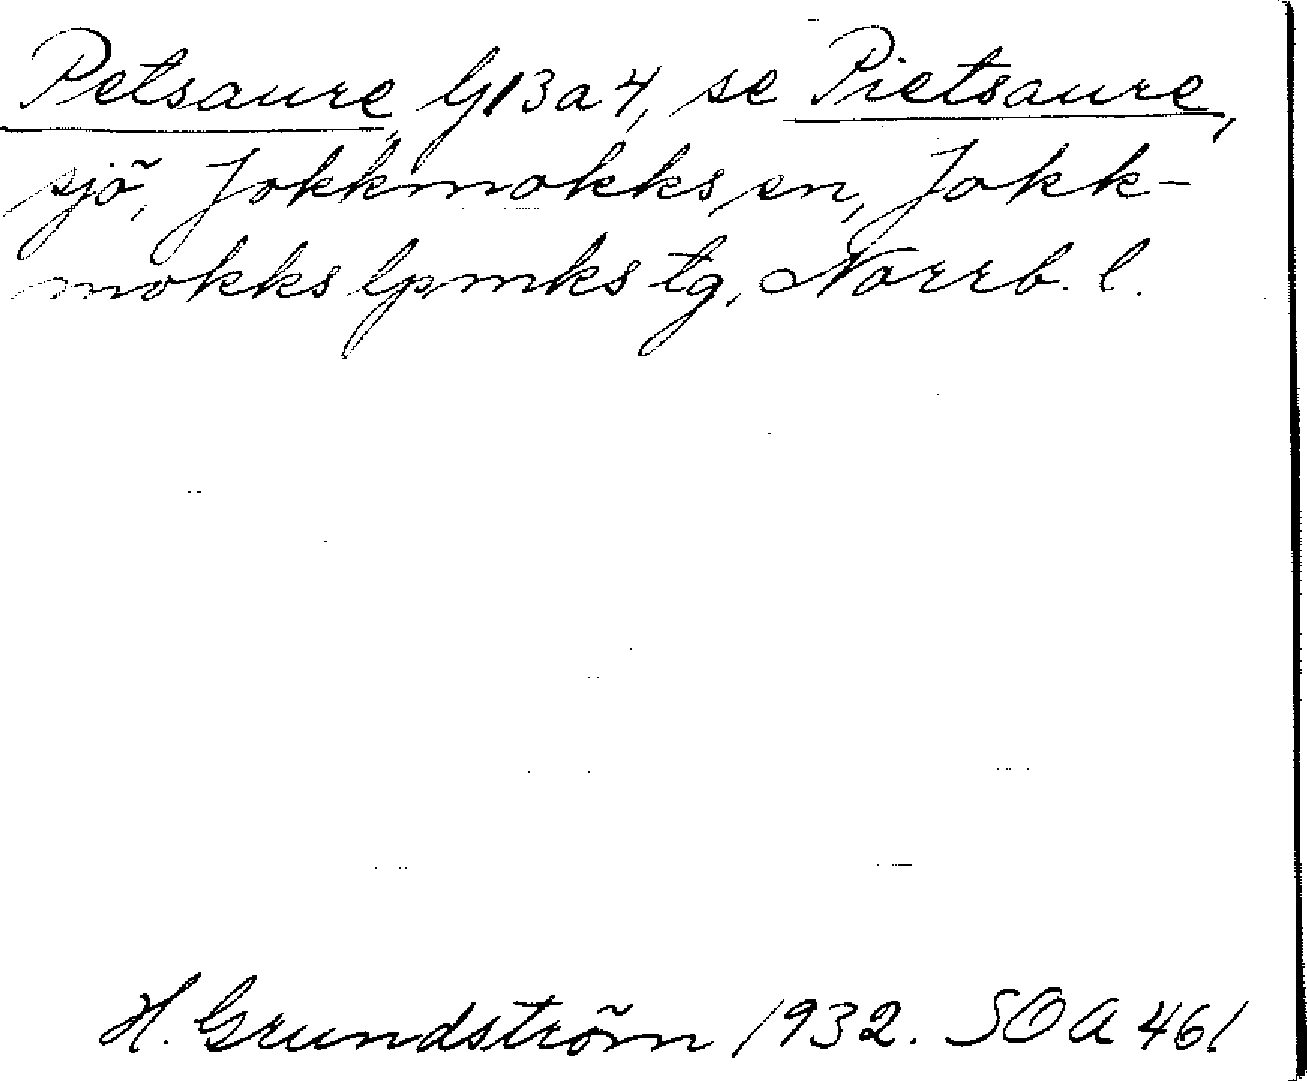 Petsaure, G13a4, se Pietsaure,
sjö, Jokkmokks sn, Jokk-
mokks lpmks tg, Norrb. l.
H. Grundström 1932. SOA 461